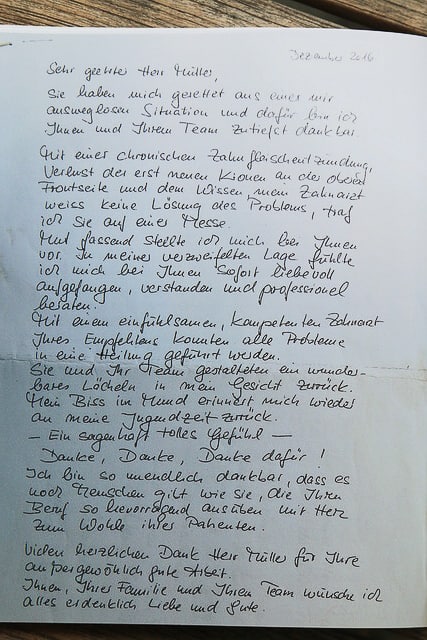 Dezember 2016
Sehr geehrter Herr Müller,
Sie haben mich gerettet aus einer mir
ausweglosen Situation und dafür bin ich
Ihnen und Ihrem Team zutiefst dankbar.
Mit einer chronischen Zahnfleischentzündung,
Verlust der erst neuen Kronen an der oberen
Frontseite und dem Wissen, mein Zahnarzt
weiss keine Lösung des Problems, traf
ich Sie auf einer Messe.
Mut fassend stellte ich mich bei Ihnen
vor. In meiner verzweifelten Lage fühlte
ich mich bei Ihnen sofort liebevoll
aufgefangen, verstanden und professionel
beraten.
Mit einem einfühlsamen, kompetenten Zahnarzt
Ihres Empfehlens konnten alle Probleme
in eine Heilung geführt werden.
Sie und Ihr Team gestalteten ein wunder-
bares Lächeln in mein Gesicht zurück.
Mein Biss im Mund erinnert mich wieder
an meine Jugendzeit zurück.
- Ein sagenhaft tolles Gefühl -
Danke, Danke, Danke dafür !
Ich bin so unendlich dankbar, dass es
noch Menschen gibt wie sie, die Ihren
Beruf so hervorragend ausüben mit Herz
zum Wohle ihrer Patienten.
Vielen herzlichen Dank Herr Müller für Ihre
außergewöhnlich gute Arbeit.
Ihnen, Ihrer Familie und Ihrem Team wünsche ich
alles erdenklich Liebe und Gute.